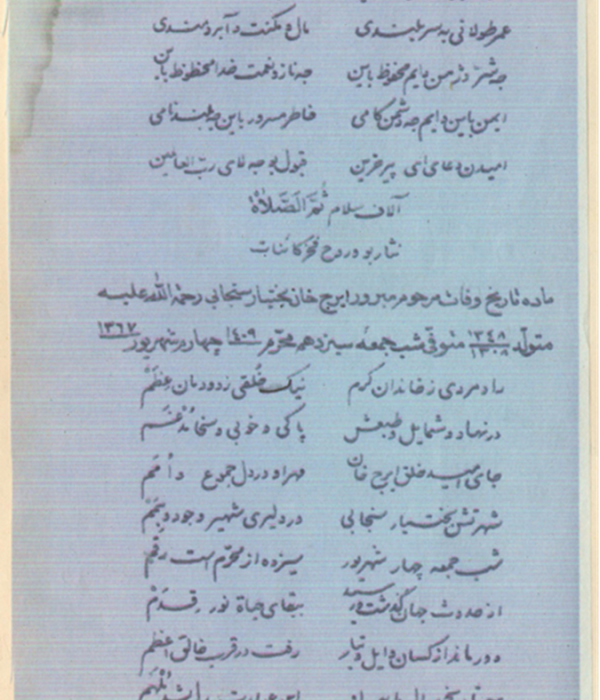 عمر طولانی به سربلندی مال و مکنت و آبرومندی
جه شر دژمن دایم محفوظ باین جه ناز و نعمت خدا محظوظ باین
ایمن باین دایم جه دشمن کامی خاطر مسرور باین جه بلندنامی
امیدن دعای ای پیر حزین قبول بو جه لای رب العالمین
آلاف سلام ثُمَّ الصَّلاة
نثار بو و روح فخر کائنات
ماده تاریخ وفات مرحوم مبرور ایرج خان بختیار سنجابی رحمة الله علیه
متولد ۱۳۴۸ ۱۳۰۸ متوفی شب جمعه سیزدهم محرم ۱۴۰۹ چهار شهریور ۱۳۶۷
راد مردی ز خاندان کرم نیک خُلقی ز دودمان عِظَم
در نهاد و شمایل و طبعش پاکی و خوبی و سخا
جای امید خلق ایرج خان مهر او در دل جموع
شهرتش بختیار سنجابی در دلیری شهیر وجود و
شب جمعه چهار شهریور سیزده از محرم است رقم
از حدوث جهان گذشت و رسید ببقای حیاة نور قِدَم
دور ماند از کسان و ایل و تبار رفت در قرب خالق اعظم